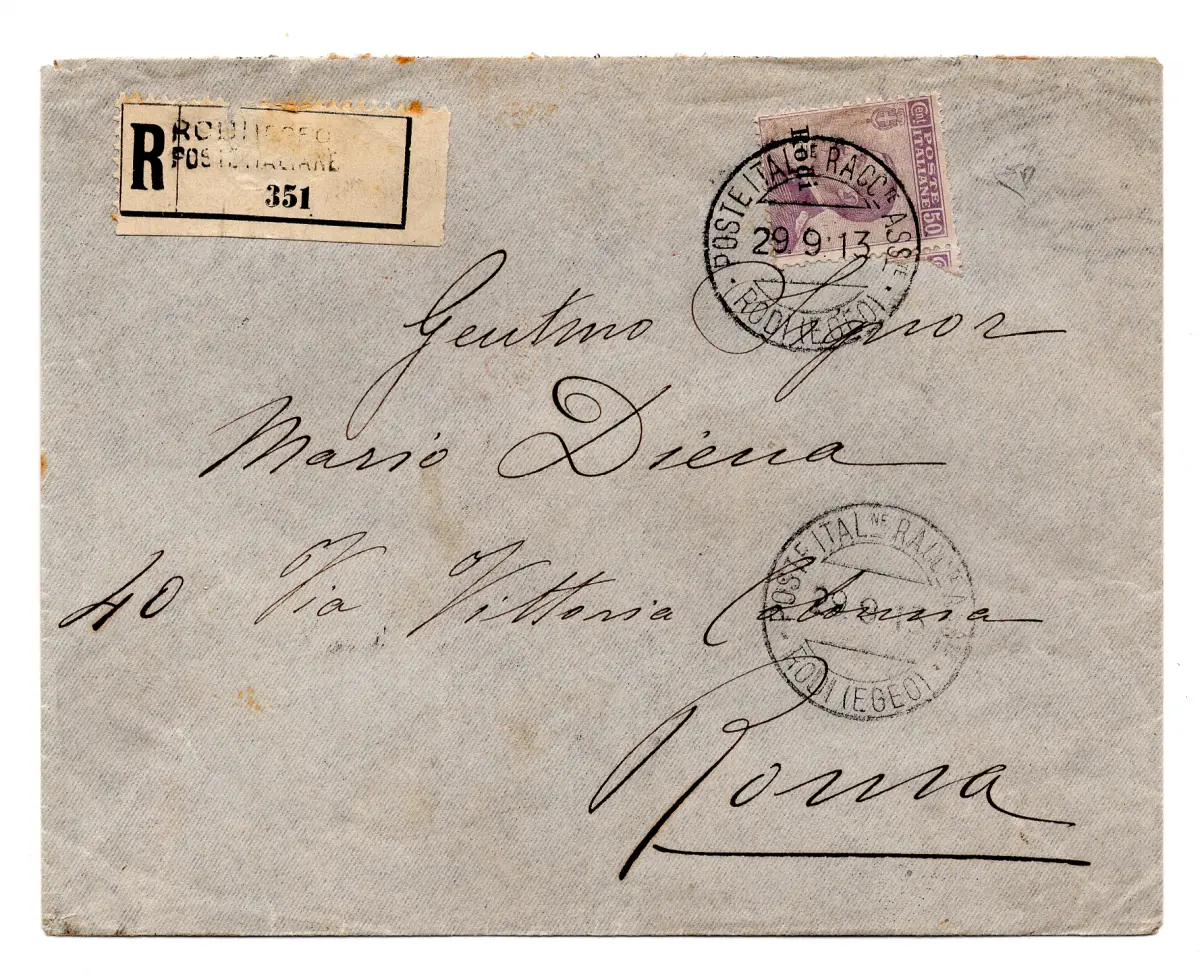 R
RODI (EGEO)
POSTE ITALIANE
351
Rodi
Cent 50
POSTE ITALIANE
Cent
POSTE ITAL.NE RACC.TE ASS.TE
29 9 · 13
(RODI (EGEO)
Gentmo Signor
Mario Diena
40 Via Vittoria Colonna
Roma
POSTE ITAL.NE RACC.TE
29 9 13
RODI (EGEO)